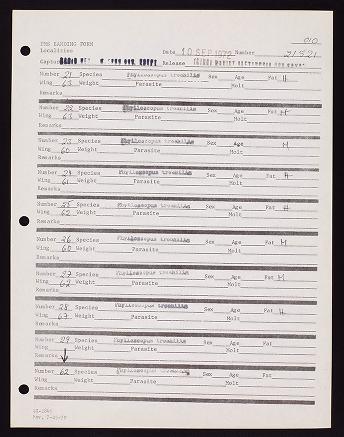 010
PMS BANDING FORM
Localities
Date 10 SEP 1972 Number 21521
Capture Release
Number 21 Species Phylloscopus trochilis Sex Age Fat H
Wing 63 Weight Parasite Molt
Remarks
Number 22 Species Phylloscopus trochilis Sex Age Fat H
Wing 63 Weight Parasite Molt
Remarks
Number 23 Species Phylloscopus trochilis Sex Age M
Wing 60 Weight Parasite Molt
Remarks
Number 24 Species Phylloscopus trochilis Sex Age Fat H
Wing 61 Weight Parasite Molt
Remarks
Number 25 Species Phylloscopus trochilis Sex Age Fat H
Wing 62 Weight Parasite Molt
Remarks
Number 26 Species Phylloscopus trochilis Sex Age Fat M
Wing 60 Weight Parasite Molt
Remarks
Number 27 Species Phylloscopus trochilis Sex Age Fat M
Wing 62 Weight Parasite Molt
Remarks
Number 28 Species Phylloscopus trochilis Sex Age Fat H
Wing 67 Weight Parasite Molt
Remarks
Number 29 Species Phylloscopus trochilis Sex Age Fat
Wing Weight Parasite Molt
Remarks
Number 62 Species Phylloscopus trochilis Sex Age Fat
Wing Weight Parasite Molt
Remarks